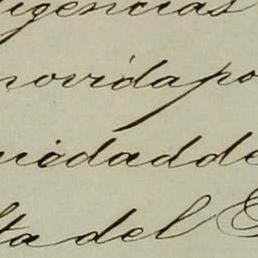 igencias
movida po
uiedad de
lta del